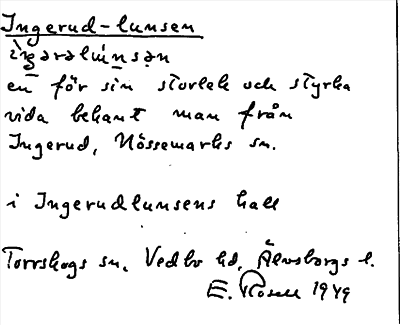 Ingerud-lunsen
ìŋərəlúnsən
en för sin storlek och styrka
vida bekant man från
Ingerud, Nössemarks sn.
i Ingerudlunsens hall
Torrskogs sn. Vedbo hd. Älvsborgs l.
E. Rosell 1949